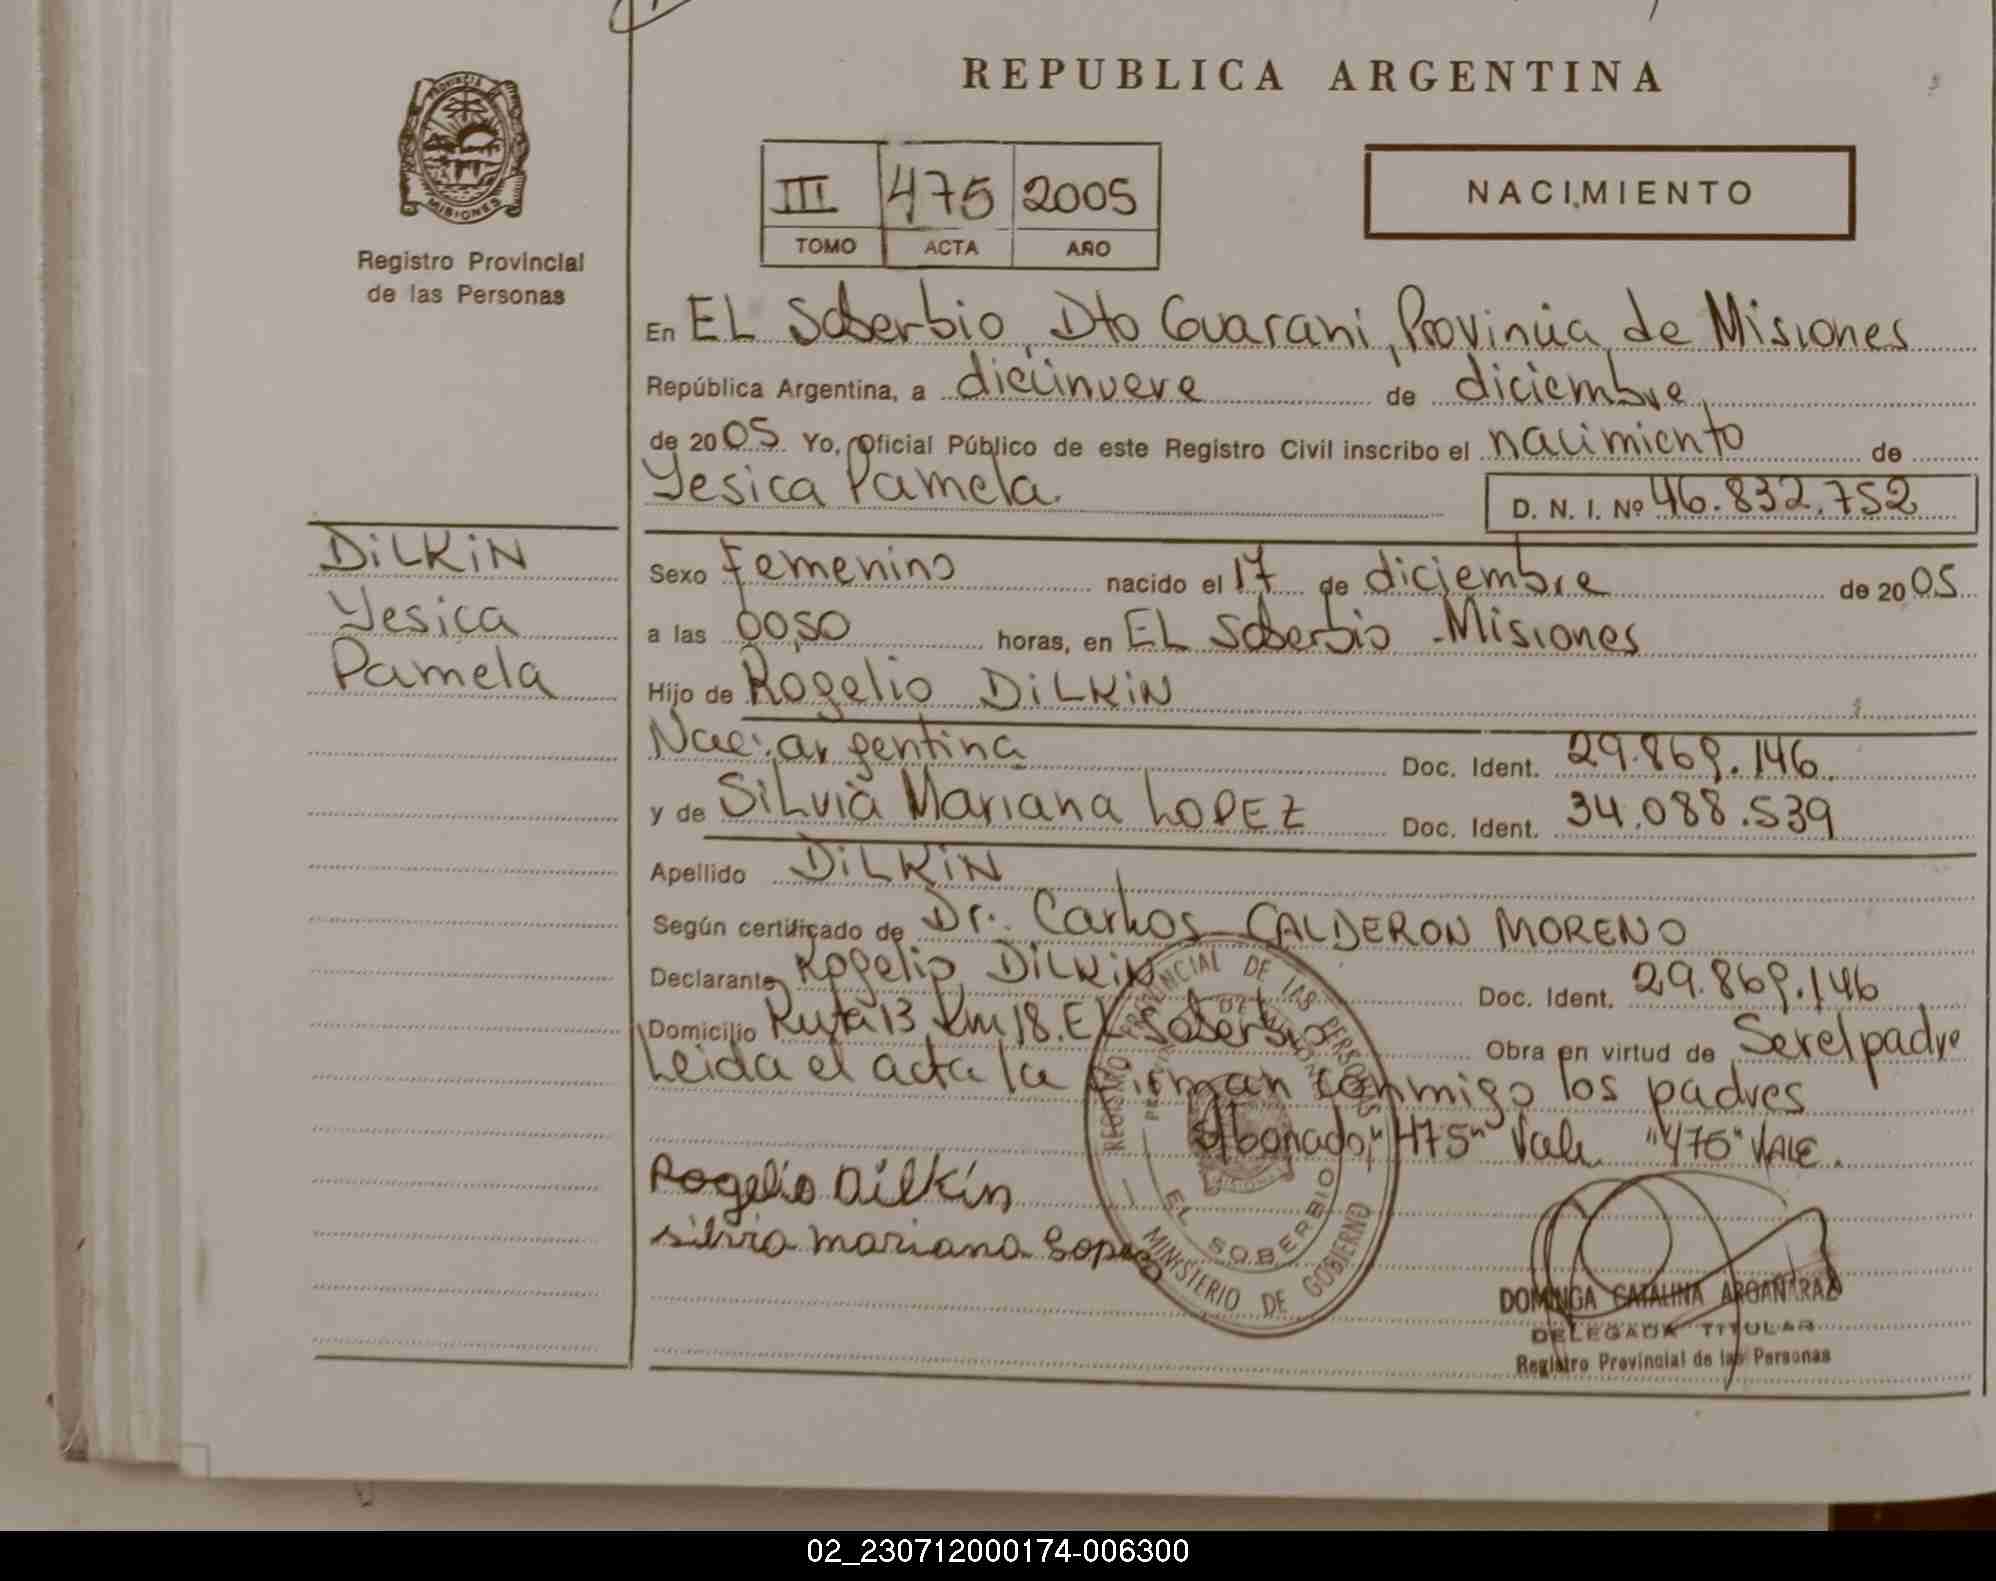 REPUBLICA ARGENTINA
PROVINCIA DE
MISIONES
Registro Provincial
de las Personas
III 475 2005
TOMO ACTA AÑO
NACIMIENTO
En EL Soberbio, Dto Guarani, Provincia de Misiones
República Argentina, a diecinueve de diciembre
de 2005 Yo, Oficial Público de este Registro Civil inscribo el nacimiento de
Yesica Pamela.
D. N. I. Nº 46.832.752
DiLKiN
Yesica
Pamela
Sexo Femenino nacido el 17 de diciembre de 2005
a las 00,50 horas, en EL Soberbio - Misiones
Hijo de Rogelio DiLKiN
Nac: argentina Doc. Ident. 29.869.146.
y de SiLvia Mariana LOPEZ Doc. Ident. 34.088.539
Apellido DiLKiN
Según certificado de Dr. Carlos CALDERON MORENO
Declarante Rogelio DiLKiN Doc. Ident. 29.869.146
Domicilio Ruta 13 Km 18. EL Soberbio Obra en virtud de Ser el padre
Leida el acta la firman conmigo los padres
Abonado, "475" Vale. "475" VALE.
Rogelio Dilkin
silvia mariana Lopez
REGISTRO PROVINCIAL DE LAS PERSONAS
EL SOBERBIO
MINISTERIO DE GOBIERNO
DOMINGA CATALINA ARGAÑARAZ
DELEGADA TITULAR
Registro Provincial de las Personas
02_230712000174-006300